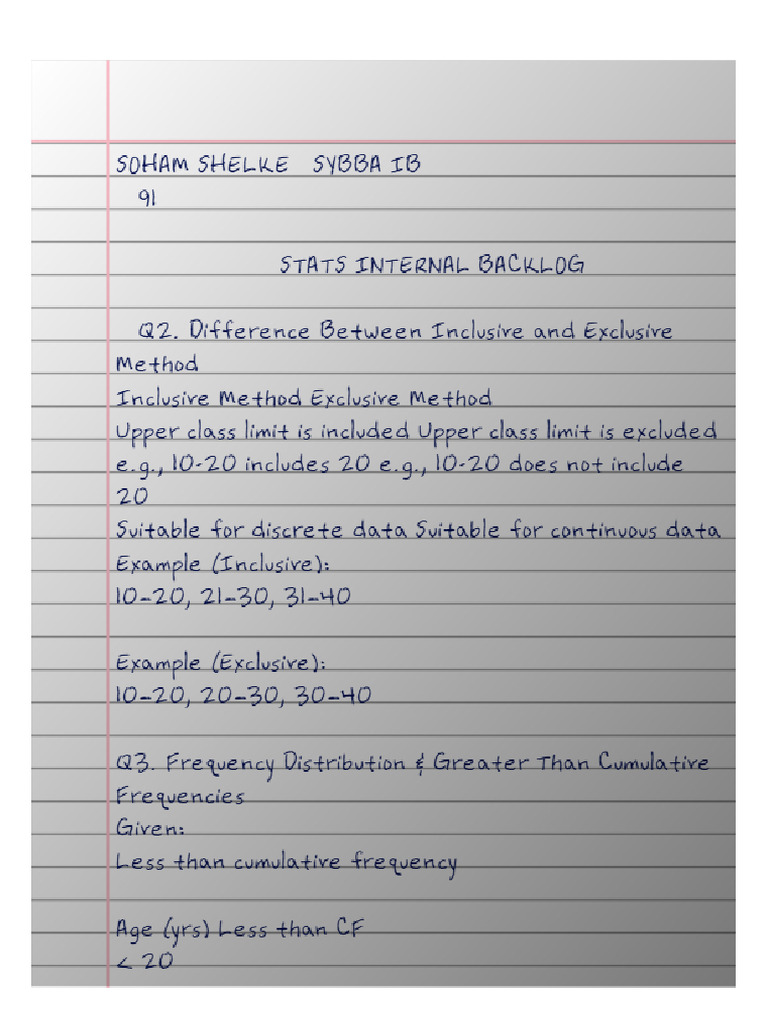 SOHAM SHELKE SYBBA IB
91
STATS INTERNAL BACKLOG
Q2. Difference Between Inclusive and Exclusive
Method
Inclusive Method Exclusive Method
Upper class limit is included Upper class limit is excluded
e.g., 10-20 includes 20 e.g., 10-20 does not include
20
Suitable for discrete data Suitable for continuous data
Example (Inclusive):
10–20, 21–30, 31–40
Example (Exclusive):
10–20, 20–30, 30–40
Q3. Frequency Distribution & Greater Than Cumulative
Frequencies
Given:
Less than cumulative frequency
Age (yrs) Less than CF
< 20